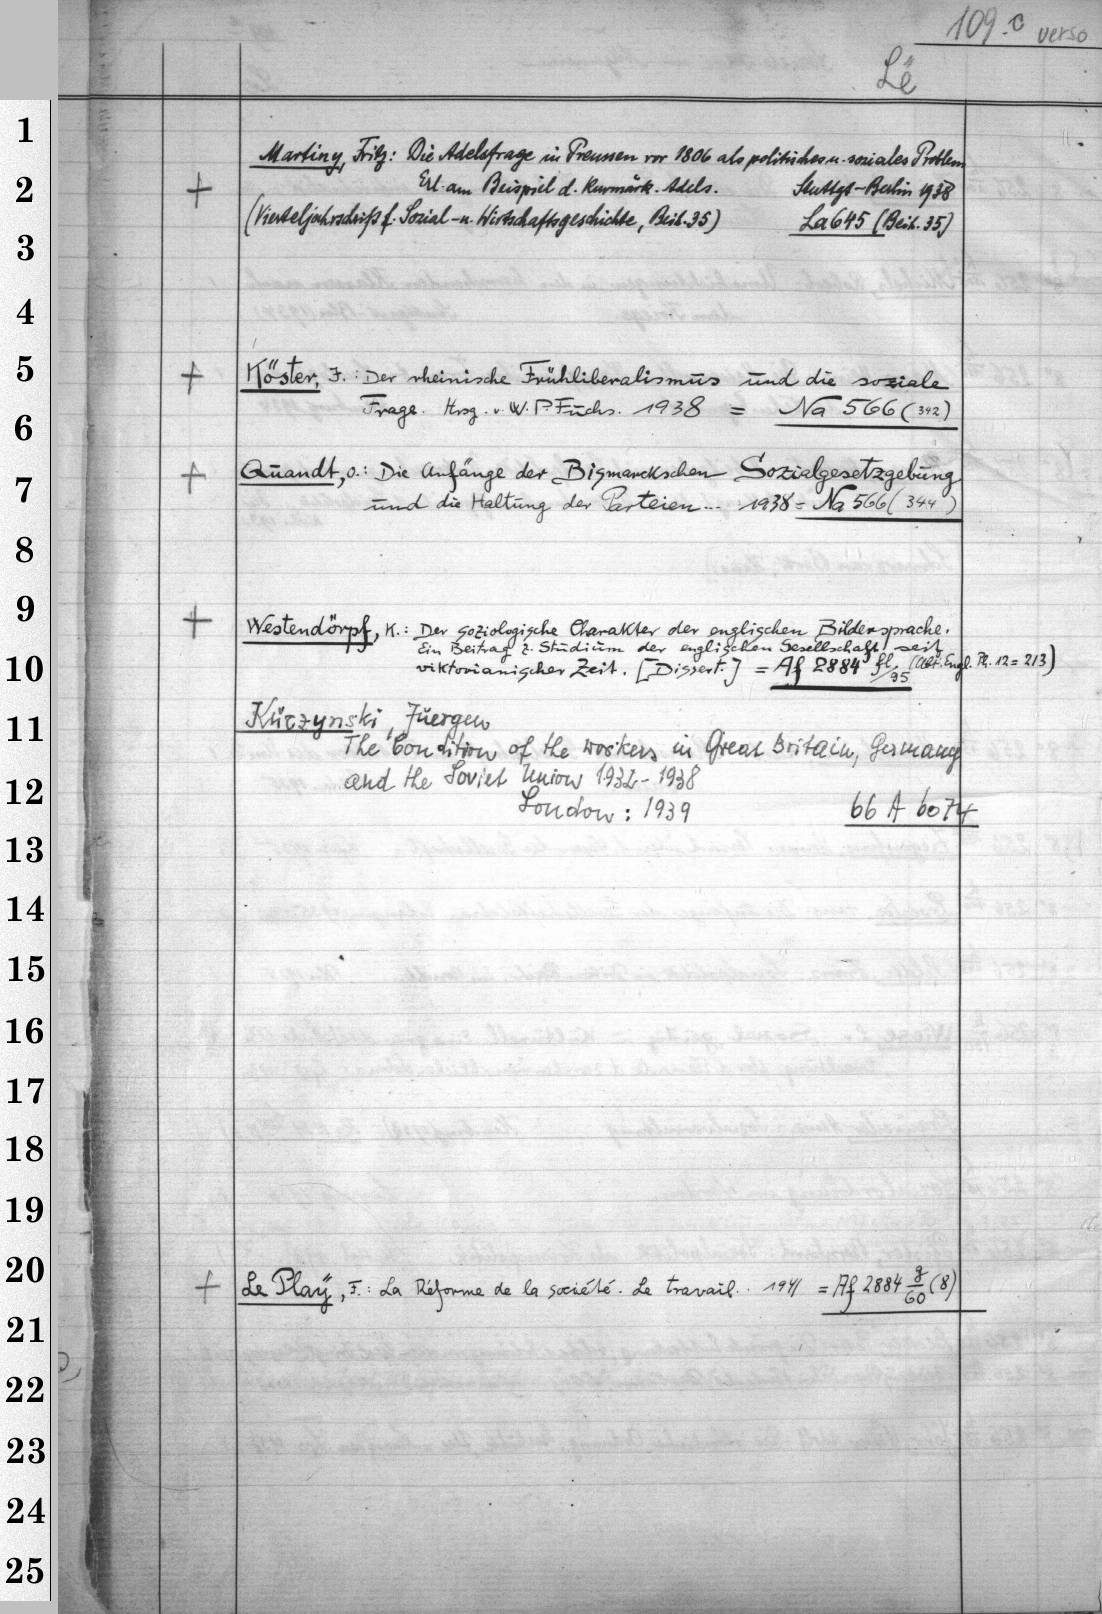 109.c verso
Lë
1
Martiny, Fritz: Die Adelsfrage in Preussen vor 1806 als politisches u. soziales Problem
2
+ Erl. am Beispiel d. kurmärk. Adels. Stuttgt-Berlin 1938
(Vierteljahrschrift f. Sozial- u. Wirtschaftsgeschichte, Beih. 35) La 645 (Beih. 35)
3
4
5
+ Köster, J.: Der rheinische Frühliberalismus und die soziale
Frage. Hrsg. v. W. P. Fuchs. 1938 = Na 566 (342)
6
7
+ Quandt, O.: Die Anfänge der Bismarckschen Sozialgesetzgebung
und die Haltung der Parteien... 1938 = Na 566 (344)
8
9
+ Westendörpf, K.: Der soziologische Charakter der englischen Bildersprache.
Ein Beitrag z. Studium der englischen Gesellschaft seit
10
viktorianischer Zeit. [Dissert.] = Af 2884 fl/95 (Abt. Engl. Ph. 12 = 213)
11
Kuczynski, Juergen
The Condition of the workers in Great Britain, Germany
and the Soviet Union 1932-1938
12
London: 1939 66 A 6074
13
14
15
16
17
18
19
20
+ Le Play, F.: La Réforme de la société. Le travail.. 1941 = Af 2884 g/60 (8)
21
22
23
24
25